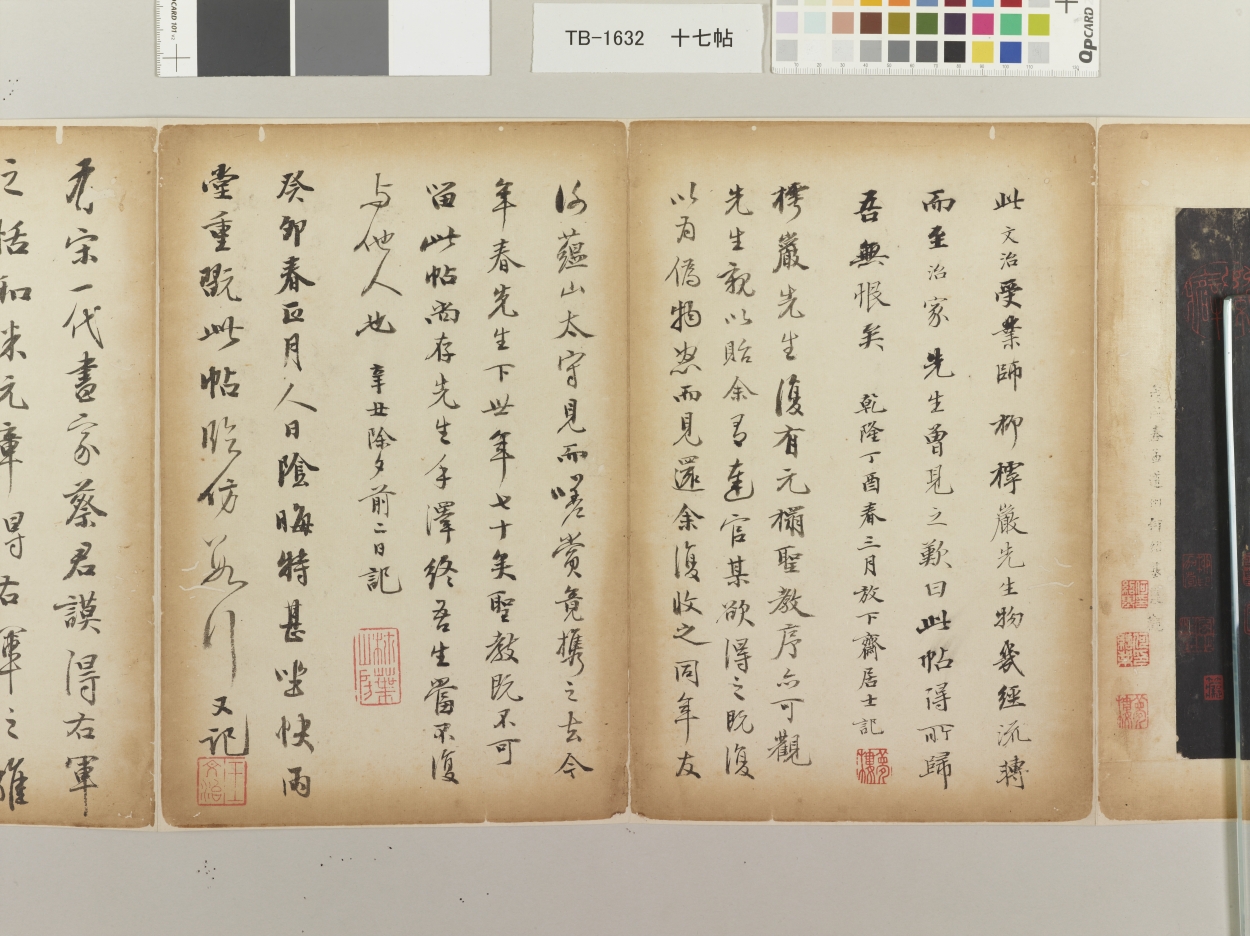 TB-1632 十七帖
此文治受業師柳樗巖先生物幾經流轉
而至治家先生曾見之歎曰此帖得所歸
吾無恨矣 乾隆丁酉春三月放下齋居士記
夢樓
樗巖先生復有元搨聖教序亦可觀
先生親以貽余有達官某欲得之既復
以為偽物忽而見還余復收之同年友
徐蘊山太守見而嗟賞竟攜之去今
年春先生下世年七十矣聖教既不可
留此帖尚存先生手澤終吾生當不復
与他人也 辛丑除夕前二日記
柿葉山房
癸卯春正月人日陰晦特甚坐快雨
堂重翫此帖臨仿數行又記
王文治
右宋一代書家蔡君謨得右軍
之恬和米元章得右軍之雄
QPCARD 101
QPCARD